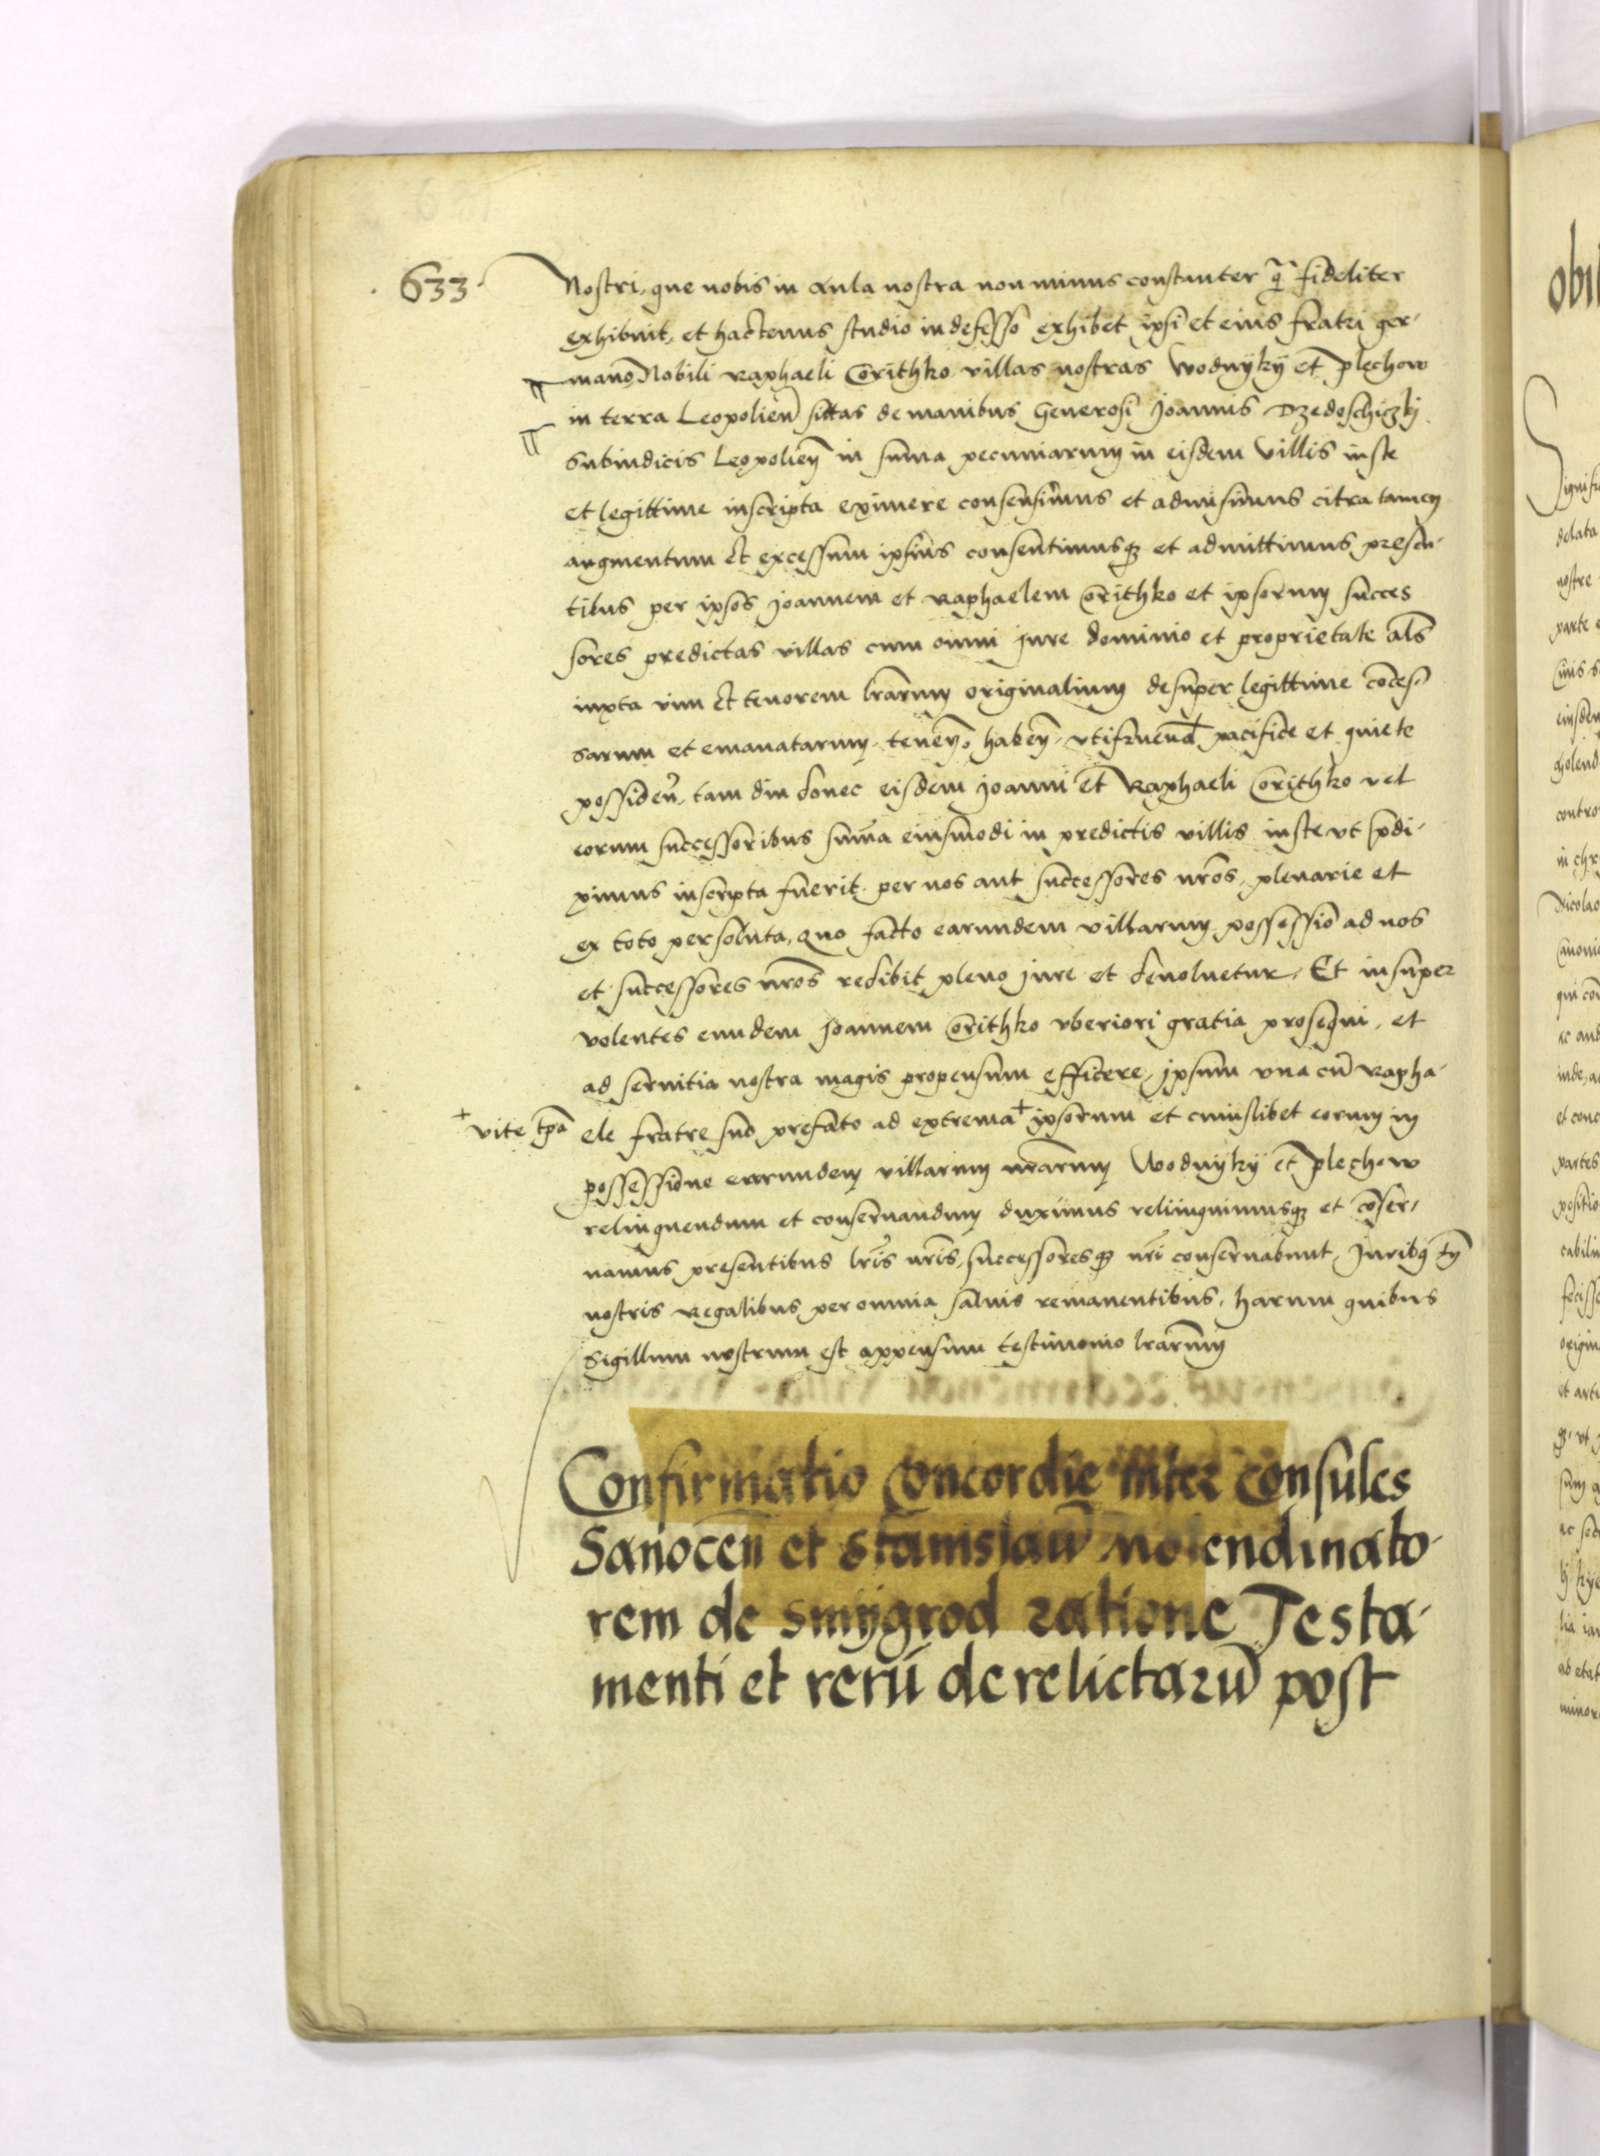 633
Nostri, que nobis in Aula nostra non minus constanter q̃ fideliter
exhibuit, et hactenus studio indefesso exhibet ipsi et eius fratri ger-
mano Nobili Raphaeli Corithko villas nostras Wodnyky et Plechow
in terra Leopolien̄ sittas de manibus Generosi Joannis Dzedoschiczky
Subiudicis Leopolien̄ in sum̄a pecuniarum in eisdem villis iuste
et legittime inscripta eximere consensimus et admisimus citra tamen
augmentum et excessum ipsius consentimusqꝫ et admittimus presen-
tibus per ipsos Joannem et Raphaelem Corithko et ipsorum succes
sores predictas villas cum omni jure dominio et proprietate als
iuxta vim et tenorem lrarum originalium desuper legittime conces-
sarum et emanatarum, tenen̄, haben̄, vtifruend pacifice et quiete
possiden̄, tam diu donec eisdem Joanni et Raphaeli Corithko vel
eorum successoribus sum̄a eiusmodi in predictis villis iuste vt p̄di-
ximus inscripta fuerit per nos aut successores nr̄os, plenarie et
ex toto persoluta, quo facto earundem villarum possessio ad nos
et successores nr̄os redibit pleno jure et deuoluetur, Et insuper
volentes eundem Joannem Corithko vberiori gratia prosequi, et
ad seruitia nostra magis propensum efficere, ipsum vna cū Rapha-
+ vite tp̄a
ele fratre suo prefato ad extrema + ipsorum et cuiuslibet eorum in
possessione earundem villarum nr̄arum Wodnyky et Plechow
relinquendum et conseruandum duximus relinquimusqꝫ et cōser-
uamus presentibus lr̄is nr̄is, successoresqꝫ nr̄i conseruabunt, Juribꝫ tn̄
nostris Regalibus per omnia saluis remanentibus, harum quibus
Sigillum nostrum est appensum testimonio lrarum
Confirmatio Concordie inter Consules
Sanoceñ et Stanislaū Molendinato-
rem de Smygrod ratione Testa-
menti et rerū derelictarū post